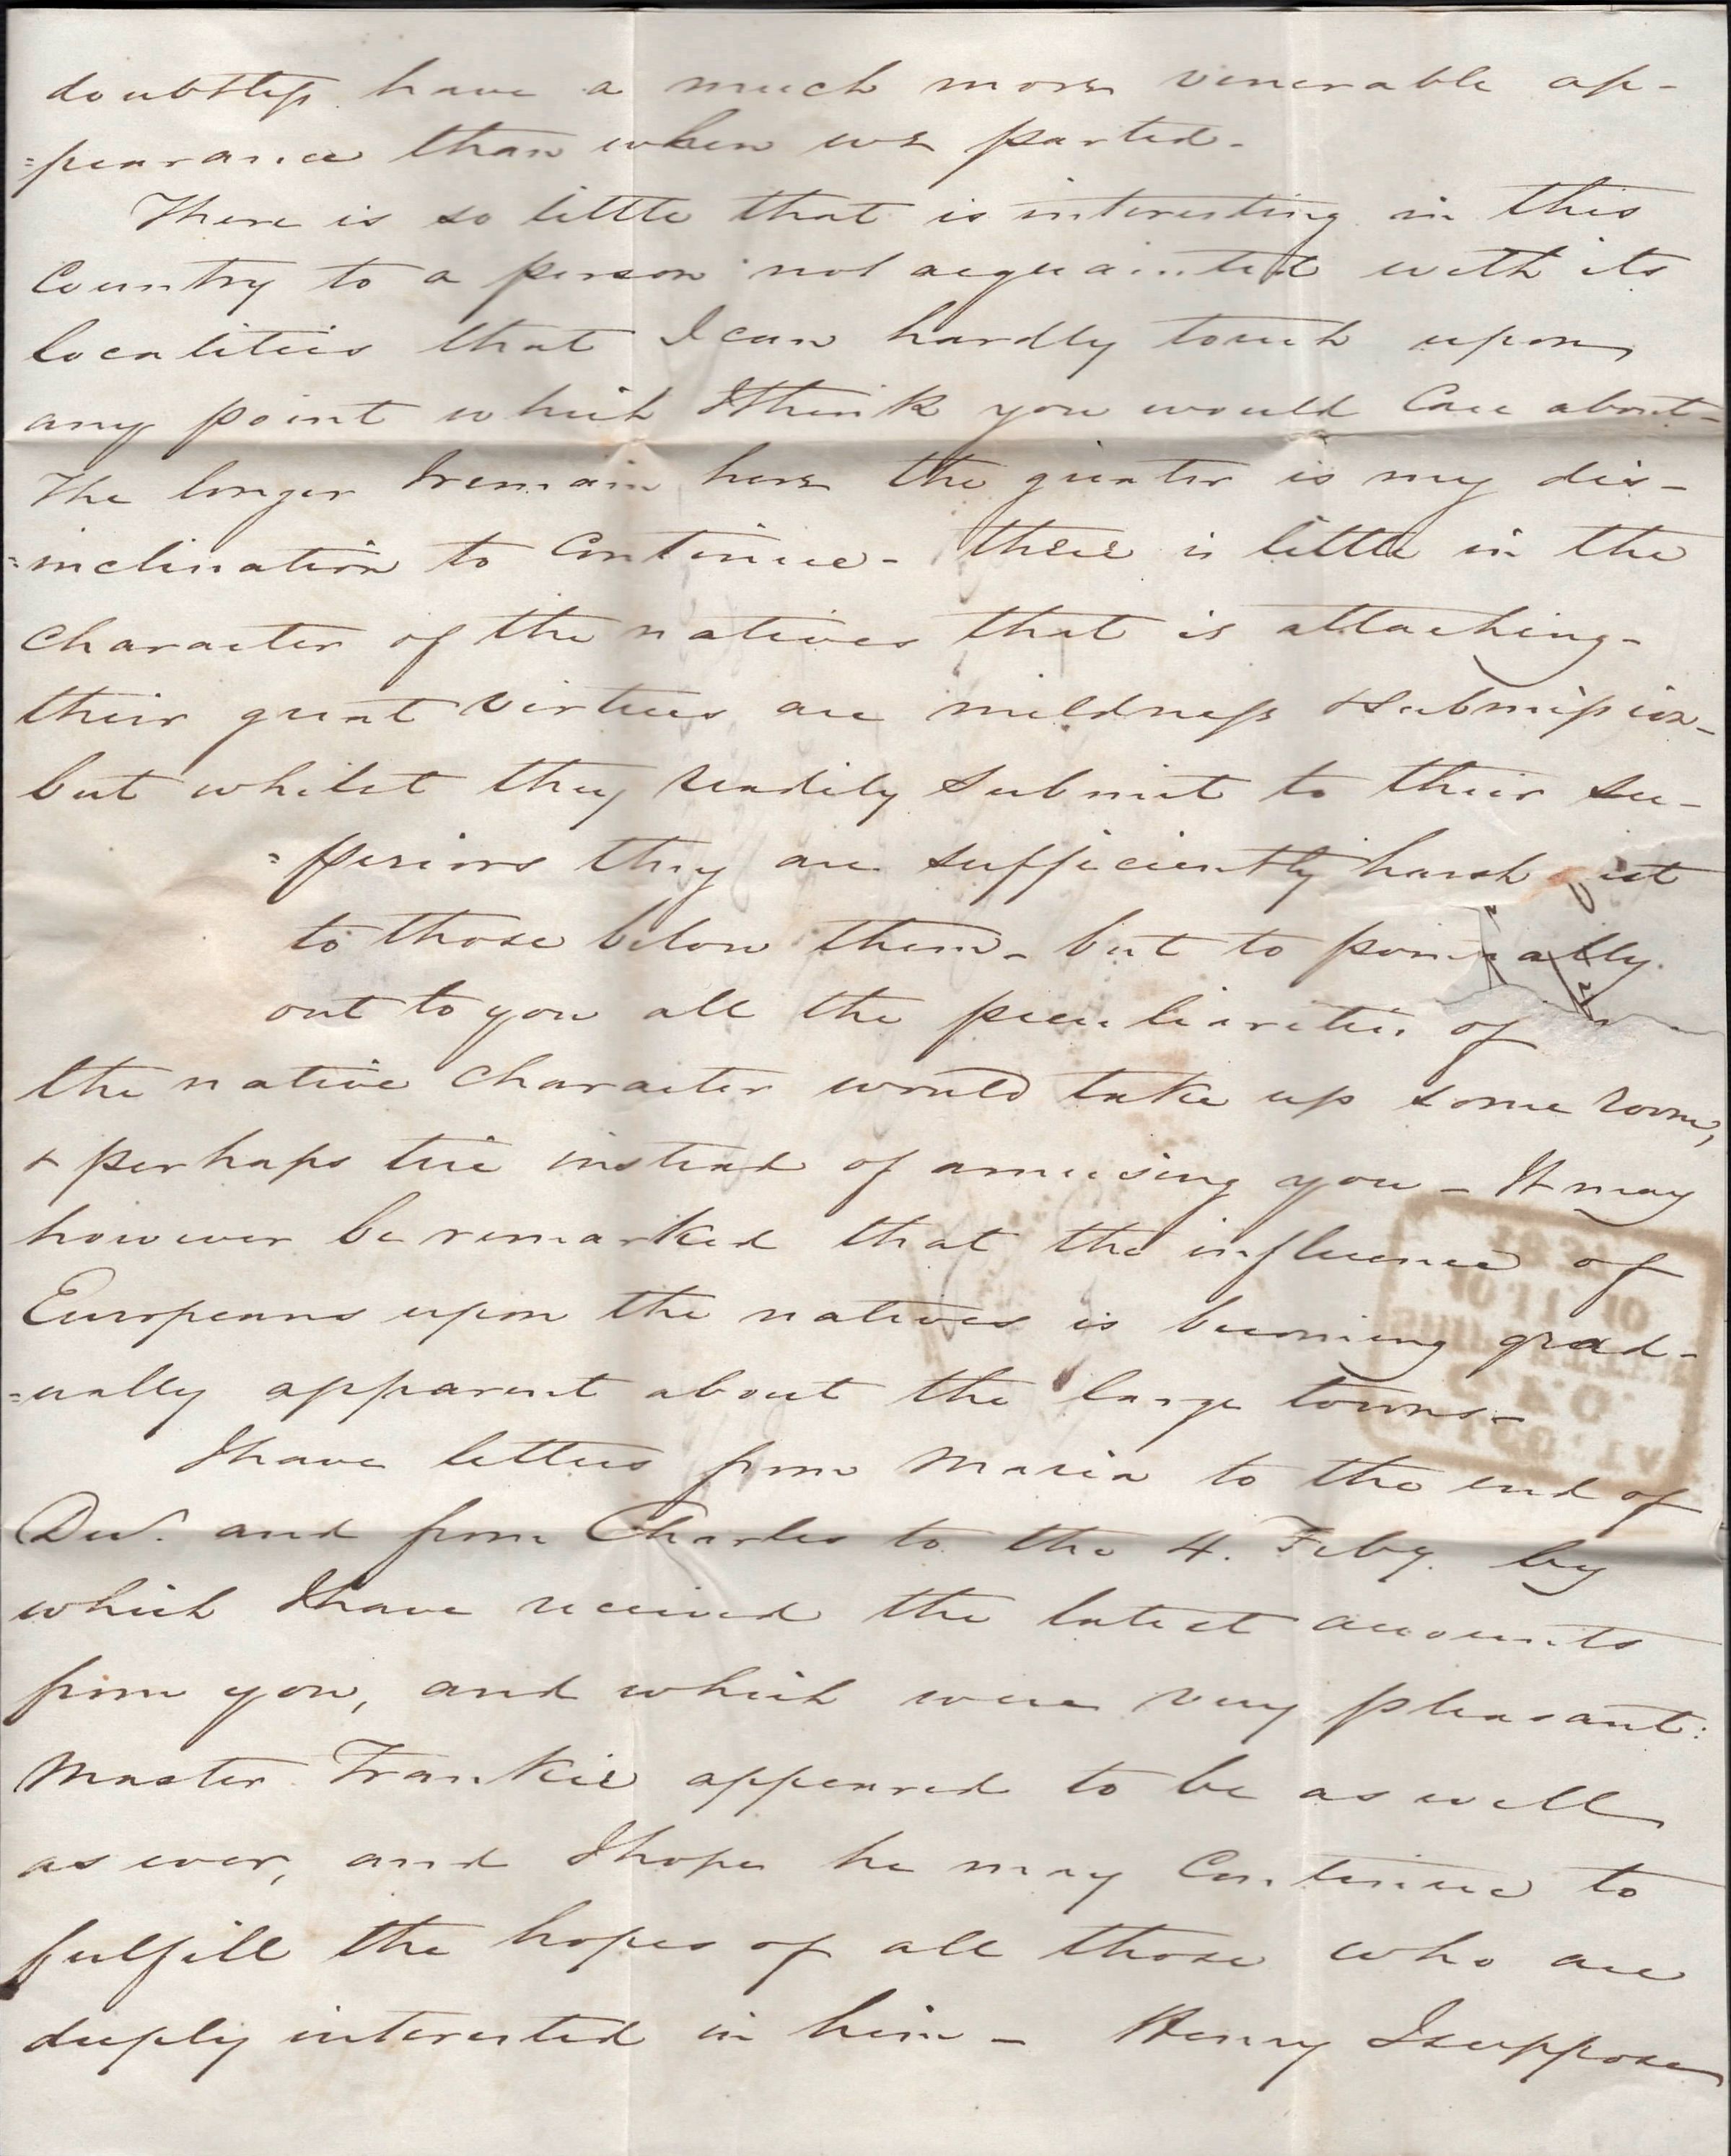 doubtless have a much more venerable ap-
=pearance than when we parted-
There is so little that is interesting in this
Country to a person not acquainted with its
localities that I can hardly touch upon
any point which I think you would Care about-
The longer I remain here the greater is my dis-
=inclination to Continue- there is little in the
Character of the natives that is attaching-
their great virtues are mildness & submission-
but whilst they readily submit to their su-
=periors they are sufficiently harsh
to those below them- but to
out to you all the peculiarities of
the native Character would take up some room,
& perhaps tire instead of amusing you- It may
however be remarked that the influence of
Europeans upon the natives is becoming grad-
=ually apparent about the large towns-
I have letters from Maria to the end of
Decr. and from Charles to the 4. Feby. by
which I have received the latest accounts
from you, and which were very pleasant:
Master Frankie appeared to be as well
as ever, and I hope he may Continue to
fulfill the hopes of all those who are
deeply interested in him- Henry I suppose